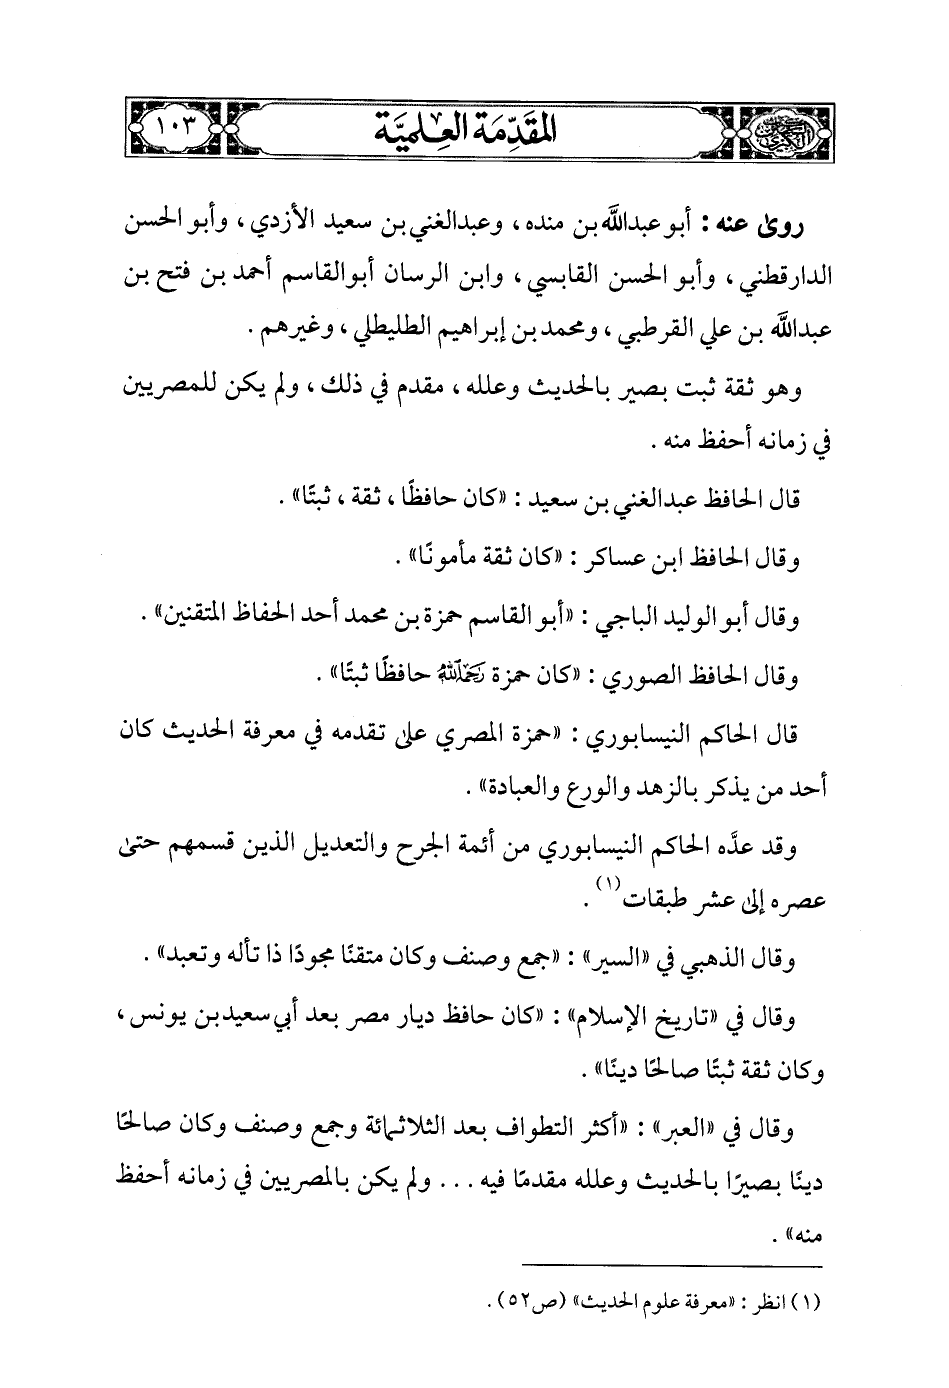 المقدمة العلمية
١٠٣
روىٰ عنه : أبو عبدالله بن منده ، وعبدالغني بن سعيد الأزدي ، وأبو الحسن
الدارقطني ، وأبو الحسن القابسي ، وابن الرسان أبوالقاسم أحمد بن فتح بن
عبدالله بن علي القرطبي ، ومحمد بن إبراهيم الطليطلي ، وغيرهم .
وهو ثقة ثبت بصير بالحديث وعلله ، مقدم في ذلك ، ولم يكن للمصريين
في زمانه أحفظ منه .
قال الحافظ عبدالغني بن سعيد : «كان حافظًا ، ثقة ، ثبتًا» .
وقال الحافظ ابن عساكر : «كان ثقة مأمونًا» .
وقال أبو الوليد الباجي : «أبو القاسم حمزة بن محمد أحد الحفاظ المتقنين» .
وقال الحافظ الصوري : «كان حمزة رحمه الله حافظًا ثبتًا» .
قال الحاكم النيسابوري : «حمزة المصري على تقدمه في معرفة الحديث كان
أحد من يذكر بالزهد والورع والعبادة» .
وقد عدَّه الحاكم النيسابوري من أئمة الجرح والتعديل الذين قسمهم حتىٰ
عصره إلىٰ عشر طبقات(١) .
وقال الذهبي في «السير» : «جمع وصنف وكان متقنًا مجودًا ذا تأله وتعبد» .
وقال في «تاريخ الإسلام» : «كان حافظ ديار مصر بعد أبي سعيد بن يونس ،
وكان ثقة ثبتًا صالحًا دينًا» .
وقال في «العبر» : «أكثر التطواف بعد الثلاثمائة وجمع وصنف وكان صالحًا
دينًا بصيرًا بالحديث وعلله مقدمًا فيه . . . ولم يكن بالمصريين في زمانه أحفظ
منه» .
(١) انظر : «معرفة علوم الحديث» (ص٥٢) .